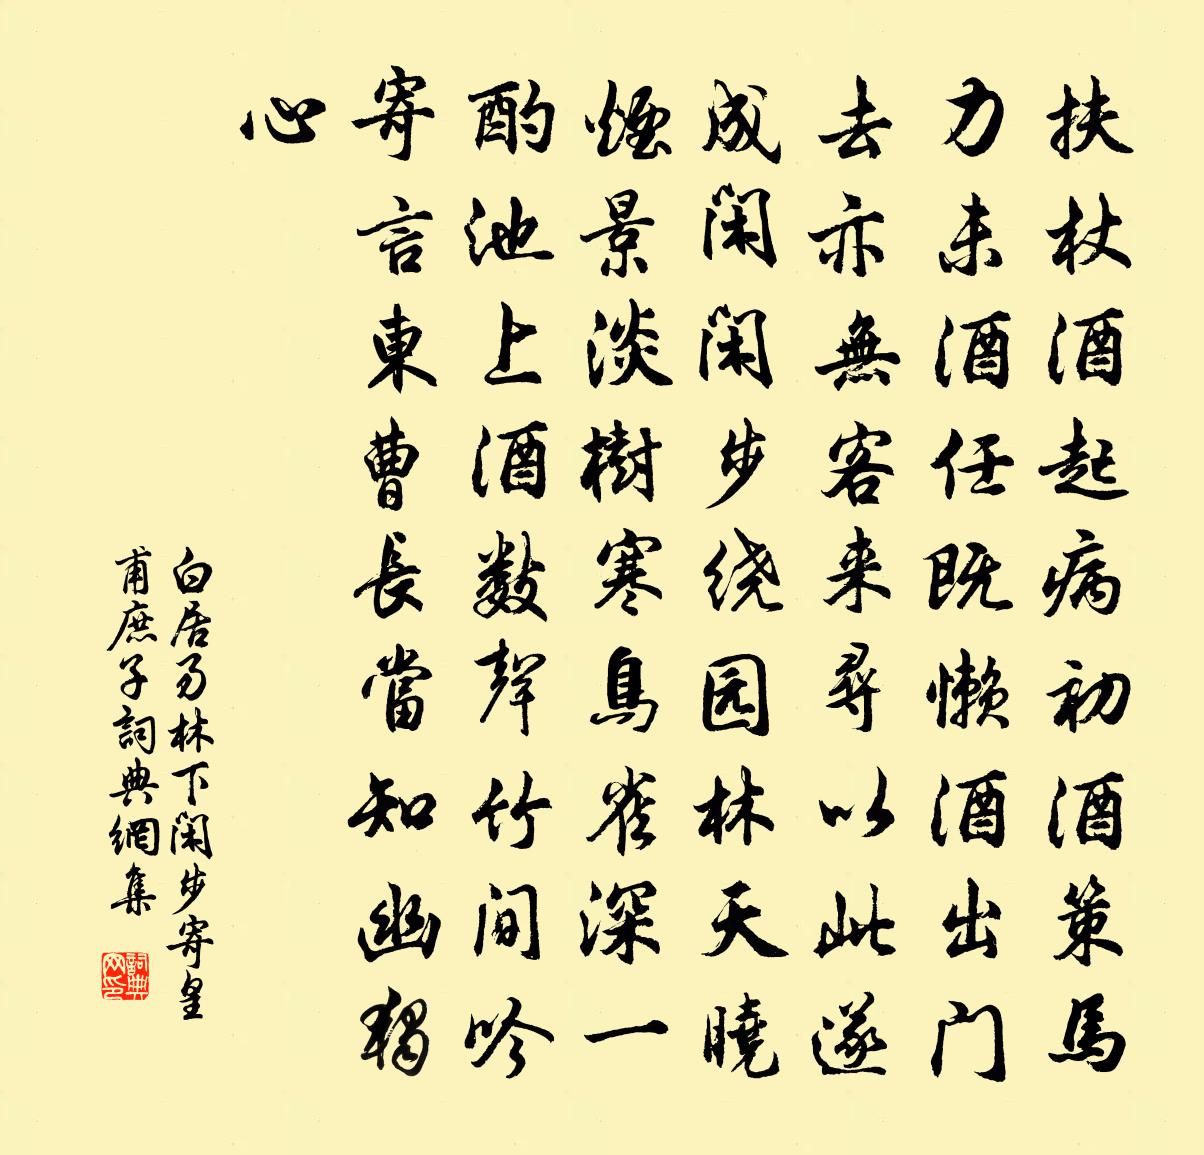 扶杖酒起病初酒策馬
力未酒任既懒酒出门
去亦無客来尋以此遂
成闲闲步绕园林天曉
煙景淡樹寒鳥雀深一
酌池上酒數聲竹间吟
寄言東曹長當知幽獨
心
白居易林下闲步寄皇
甫庶子詞典網集
詞典
网印